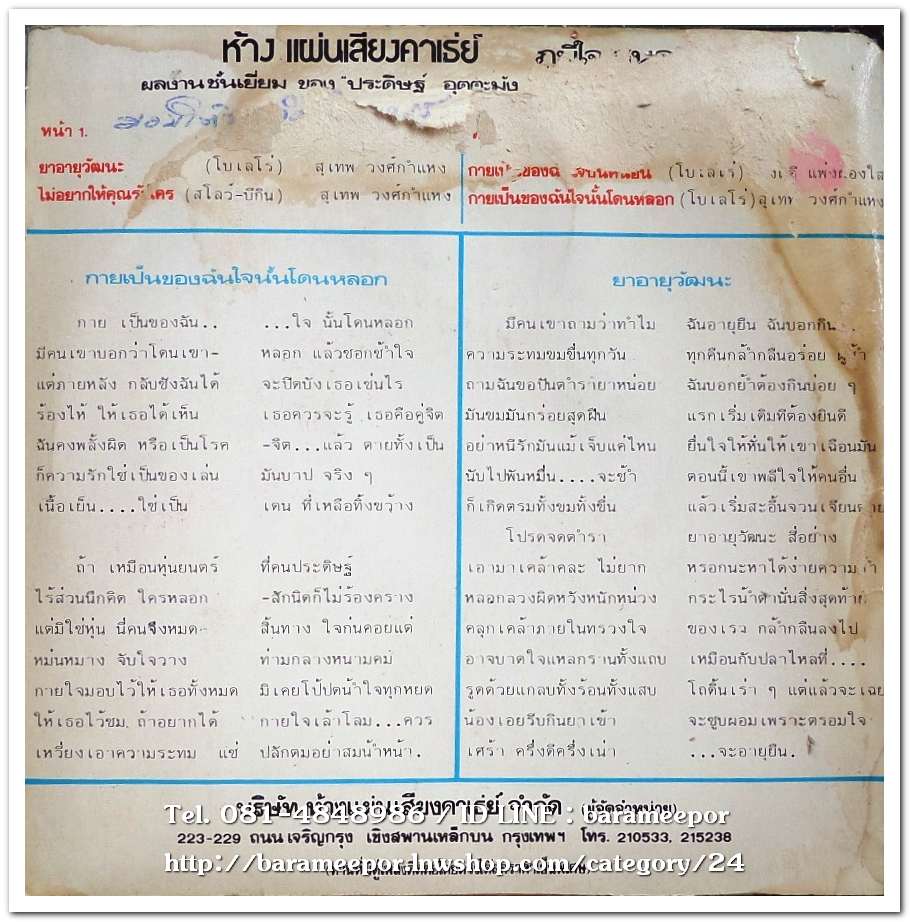 ห้าง แผ่นเสียงคาเธ่ย์
ผลงานชั้นเยี่ยม ของ ประดิษฐ์ อุตตะมัง
หน้า 1.
ยาอายุวัฒนะ (โบเลโร่) สุเทพ วงศ์กำแหง
ไม่อยากให้คุณรั ใคร (สโลว์-บีกิน) สุเทพ วงศ์กำแหง
(โบเลโร่) แพ่งผ่องใส
กายเป็นของฉันใจนั้นโดนหลอก (โบเลโร่) สุเทพ วงศ์กำแหง
กายเป็นของฉันใจนั้นโดนหลอก
กาย เป็นของฉัน.. ...ใจ นั้นโดนหลอก
มีคนเขาบอกว่าโดนเขา- หลอก แล้วชอกช้ำใจ
แต่ภายหลัง กลับชังฉันได้ จะปิดบังเธอเช่นไร
ร้องไห้ ให้เธอได้เห็น เธอควรจะรู้ เธอคือคู่จิต
ฉันคงพลั้งผิด หรือเป็นโรค -จิต...แล้ว ตายทั้งเป็น
ก็ความรักใช่เป็นของเล่น มันบาป จริง ๆ
เนื้อเย็น....ใช่เป็น เดน ที่เหลือทิ้งขว้าง
ถ้า เหมือนหุ่นยนตร์ ที่คนประดิษฐ์
ไร้ส่วนนึกคิด ใครหลอก -สักนิดก็ไม่ร้องคราง
แต่มิใช่หุ่น นี่คนจึงหมด- สิ้นทาง ใจก่นคอยแต่
หม่นหมาง จับใจวาง ท่ามกลางหนามคม
กายใจมอบไว้ให้เธอทั้งหมด มิเคยโป้ปดน้ำใจทุกหยด
ให้เธอไว้ชม ถ้าอยากได้ กายใจเล้าโลม...ควร
เหวี่ยงเอาความระทม แช่ ปลักตมอย่าสมน้ำหน้า.
ยาอายุวัฒนะ
มีคนเขาถามว่าทำไม ฉันอายุยืน ฉันบอกกิน..
ความระทมขมขื่นทุกวัน ทุกคืนกล้ำกลืนอร่อย
ถามฉันขอปันตำรายาหน่อย ฉันบอกย้ำต้องกินบ่อย ๆ
มันขมมันกร่อยสุดฝืน แรกเริ่มเดิมทีต้องยินดี
อย่าหนีรักมันแม้เจ็บแค่ไหน ยื่นใจให้หั่นให้เขาเฉือนมัน
นับไปพันหมื่น....จะช้ำ ตอนนี้เขาพลีใจให้คนอื่น
ก็เกิดตรมทั้งขมทั้งขื่น แล้วเริ่มสะอื้นจวนเจียน
โปรดจดตำรา ยาอายุวัฒนะ สี่อย่าง
เอามาเคล้าคละ ไม่ยาก หรอกนะหาได้ง่ายความ
หลอกลวงผิดหวังหนักหน่วง กระไรน้ำตานั่นสิ่งสุดท้าย
คลุกเคล้าภายในทรวงใจ ของเรา กล้ำกลืนลงไป
อาจบาดใจแหลกรานทั้งแถบ เหมือนกับปลาไหลที่....
รูดด้วยแกลบทั้งร้อนทั้งแสบ โถดิ้นเร่า ๆ แต่แล้วจะเฉย
น้องเอยรีบกินยาเข้า จะซูบผอมเพราะตรอมใจ
เศร้า ครึ่งดีครึ่งเน่า ...จะอายุยืน.
บริษัท ห้างแผ่นเสียงคาเธ่ย์ จำกัด (ผู้จัดจำหน่าย)
Tel. 081-4848986 / ID LINE : barameepor
223-229 ถนนเจริญกรุง เชิงสพานเหล็กบน กรุงเทพฯ โทร. 210533, 215238
http://barameepor.lnwshop.com/category/24